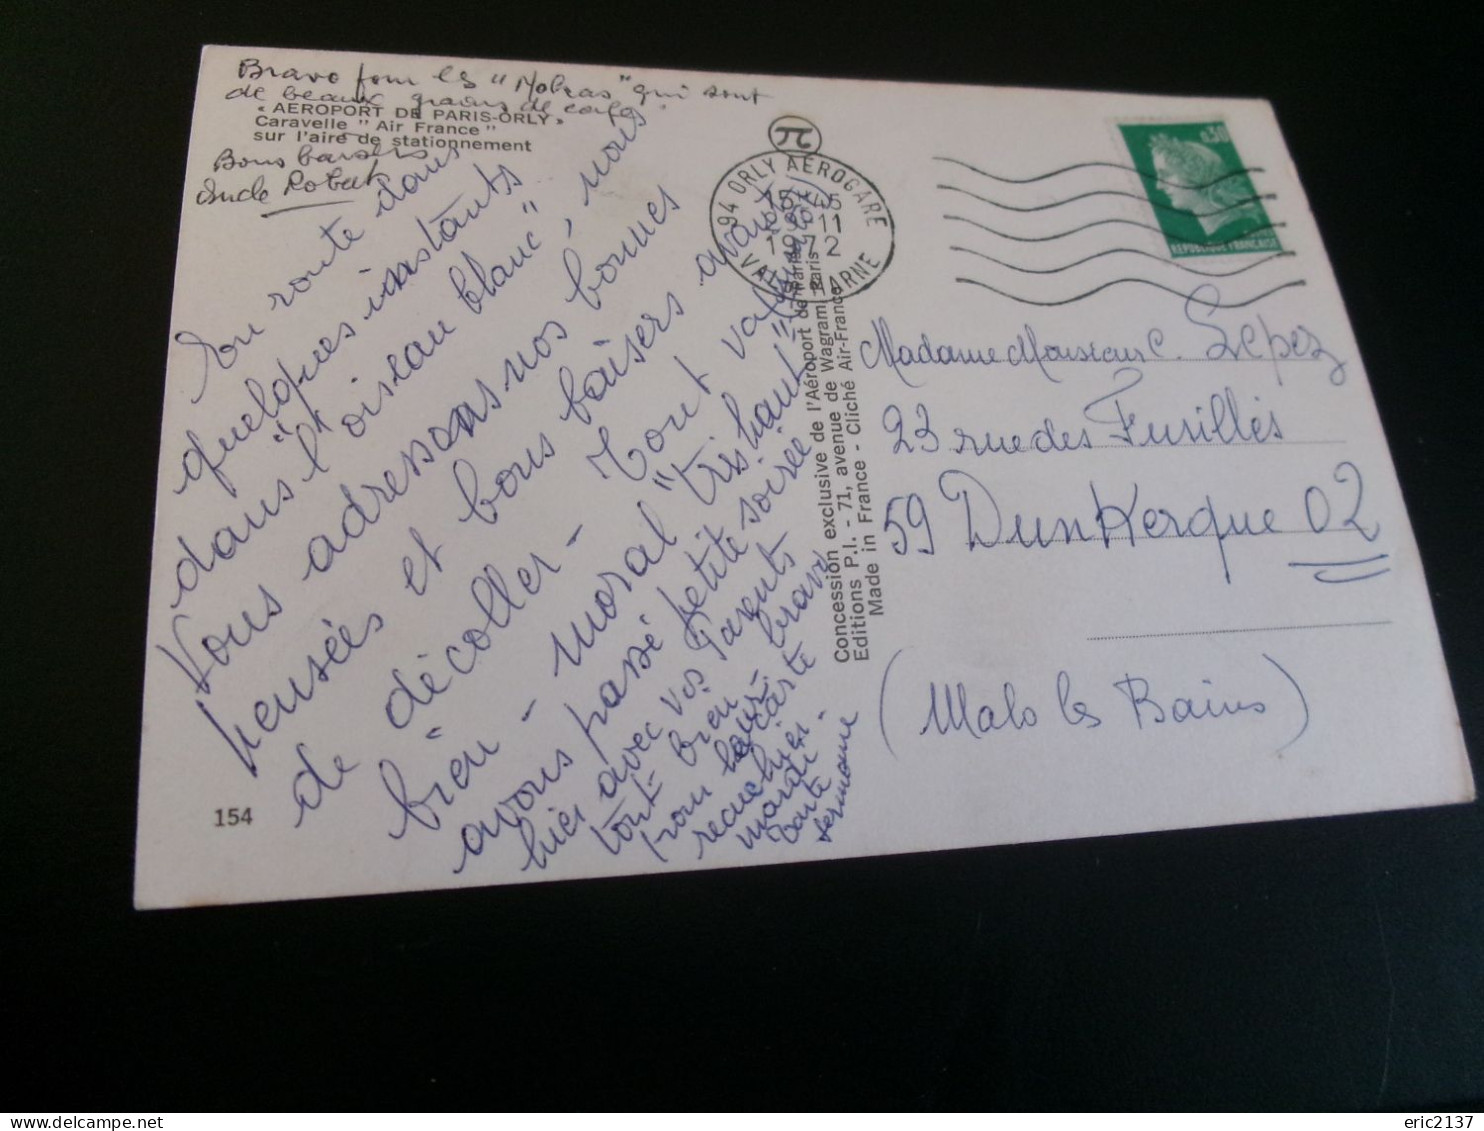 Bravo pour les "Mokas" qui sont
de beaux grains de café.
« AEROPORT DE PARIS-ORLY »
Caravelle " Air France "
sur l'aire de stationnement
Bons baisers
Oncle Robert
En route dans
quelques instants
dans "l'oiseau blanc", nous
vous adressons nos bonnes
pensées et bons baisers avant
de décoller - Tout va
bien - moral "très haut"
avons passé petite soirée
hier avec vos Parents
tout bien - bravo
pour
carte
mardi
semaine
154
94 ORLY AÉROGARE
15 45
11
1972
VAL DE MARNE
0,30
REPUBLIQUE FRANÇAISE
Concession exclusive de l'Aéroport de Paris
Editions P.I. - 71, avenue de Wagram, Paris
Made in France - Cliché Air-France
Madame Monsieur C. Lepez
23 rue des Fusillés
59 Dunkerque 02
(Malo les Bains)
eric2137